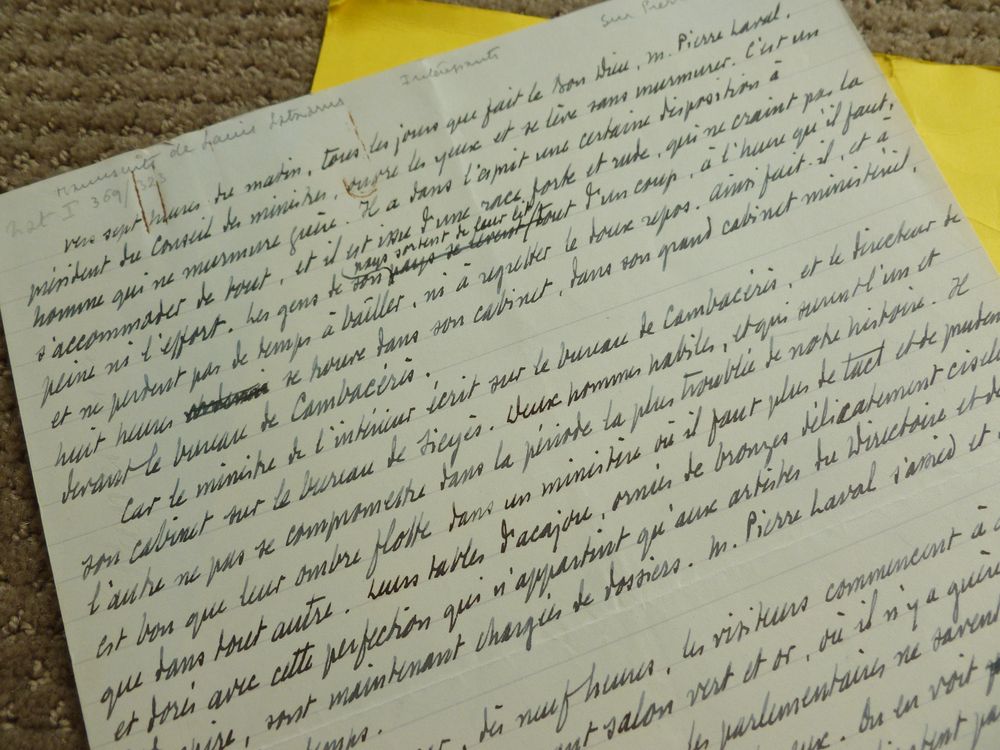 Intéressante
sur Pierre
manuscrit de Louis Latzarus
Nat I 369/323
vers sept heures du matin, tous les jours que fait le Bon Dieu, M. Pierre Laval,
président du Conseil des ministres, ouvre les yeux et se lève sans murmurer. C'est un
homme qui ne murmure guère. Il a dans l'esprit une certaine disposition à
s'accommoder de tout, et il est issu d'une race forte et rude, qui ne craint pas la
peine ni l'effort. Les gens de son pays se lèvent tout d'un coup, à l'heure qu'il faut,
pays sortent de leur lit
et ne perdent pas de temps à bâiller, ni à regretter le doux repos. Ainsi fait-il, et à
huit heures se trouve dans son cabinet, dans son grand cabinet ministériel,
devant le bureau de Cambacérès.
Car le ministre de l'intérieur écrit sur le bureau de Cambacérès, et le directeur de
son cabinet sur le bureau de Sieyès. Deux hommes habiles, et qui surent l'un et
l'autre ne pas se compromettre dans la période la plus troublée de notre histoire. Il
est bon que leur ombre flotte dans un ministère où il faut plus de tact et de pruden
que dans tout autre. Leurs tables d'acajou, ornées de bronzes délicatement cise
et dorés avec cette perfection qui n'appartint qu'aux artistes du Directoire et de
pire, sont maintenant chargées de dossiers. M. Pierre Laval s'assied et
temps.
dès neuf heures, les visiteurs commencent à
salon vert et or, où il n'y a guère
les parlementaires ne saven
On en voit